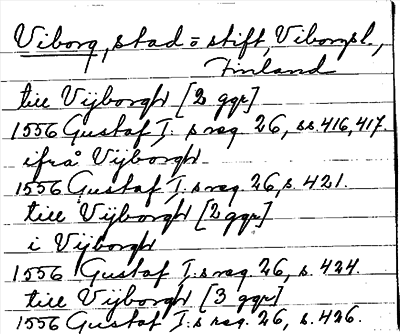 Viborg, stad o stift, Viborgsl.,
Finland
till Vijborgh [2 ggr]
1556 Gustaf I:s reg. 26, ss. 416, 417.
ifrå Vijborgh
1556 Gustaf I:s reg. 26, s. 421.
till Vijborgh [2 ggr]
i Vijborgh
1556 Gustaf I:s reg. 26, s. 424.
till Vijborgh [3 ggr]
1556 Gustaf I:s reg. 26, s. 426.